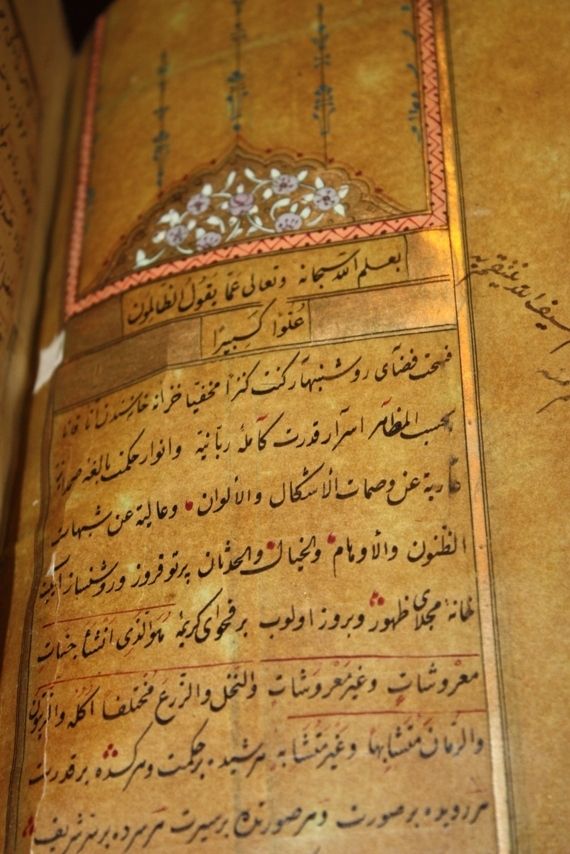 بعلم الله سبحانه وتعالى عما يقول الظالمون
علوا كبيرا
فسحت فضآی روشنبهار كنت كنزا مخفيا خزانه
بحسب المظاهر اسرار قدرت كاملۀ ربانيه وانوار حكمت بالغه صمدانيه
عارية عن وصمات الأشكال والألوان وعالية عن شبهات
الظنون والأوهام والخيال والحدثان پرتو فروز وروشنساز آيينه
خانۀ مجلای ظهور وبروز اولوب بر فحوای كريمۀ هو الذي انشأ جنات
معروشات وغير معروشات والنخل والزرع مختلفا اكله والزيتون
والرمان متشابها وغير متشابه هر شيده بر حكمت وهر كسده بر قدرت
هر رويده بر صورت وهر صورتده بر سيرت هر سرده بر سر شريف